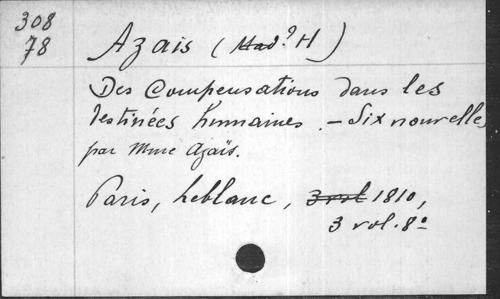 308
78
Azais (Mad? H)
Des Compensations dans les
destinées humaines. - Six nouvelles
par Mme Azaïs.
Paris, Leblanc, 3 vol 1810,
3 vol. 8º